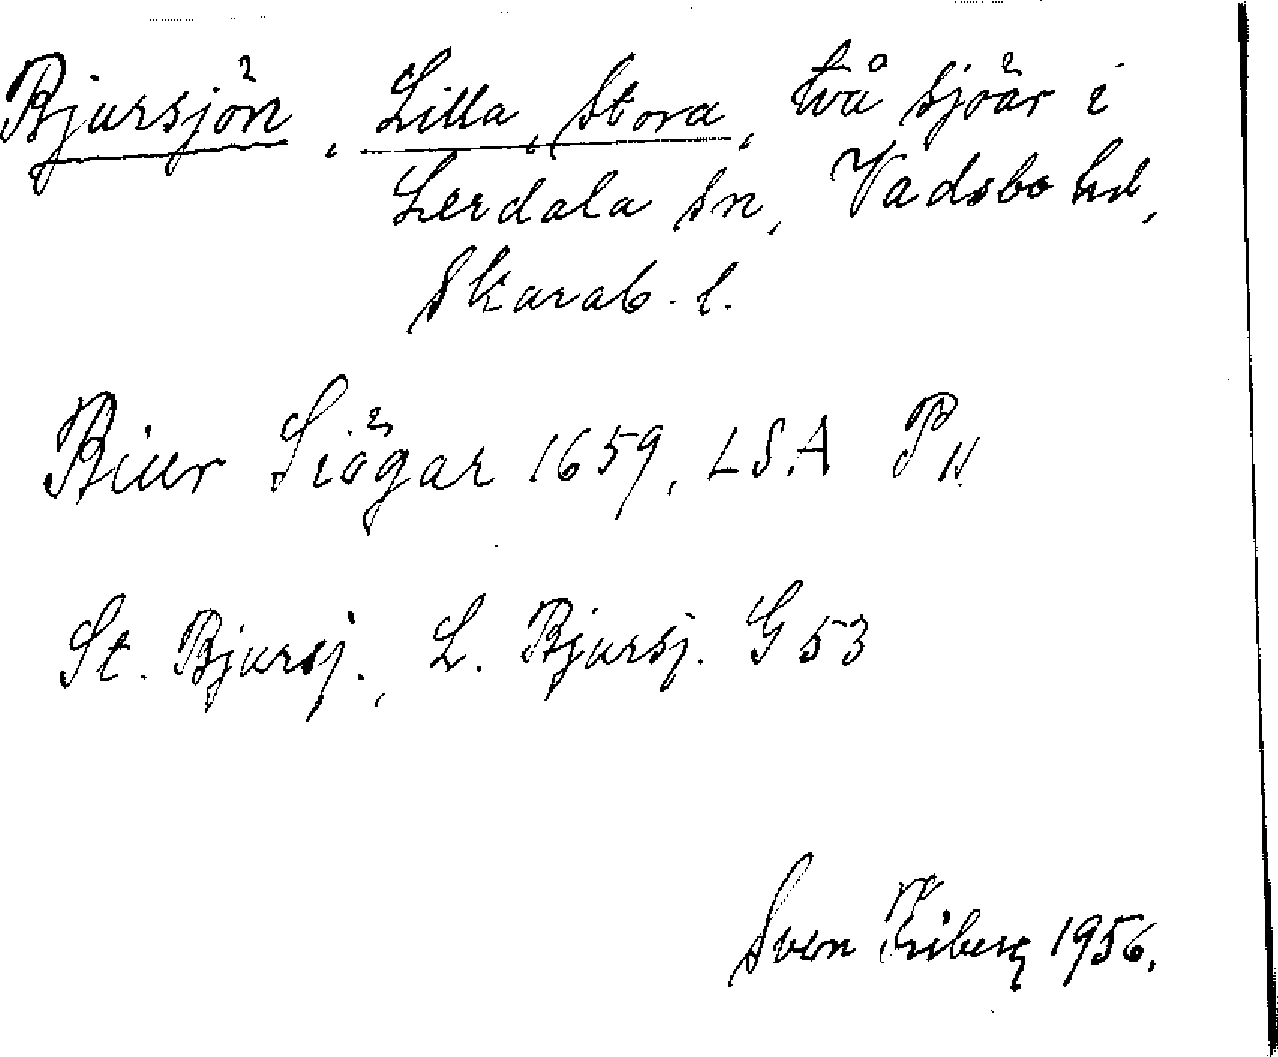 Bjursjön, Lilla, Stora, två sjöar i
Lerdala sn, Vadsbo hd,
Skarab. l.
Biur Siögar 1659, LSA P11
St. Bjursj., L. Bjursj. G 53
Sven Friberg 1956.